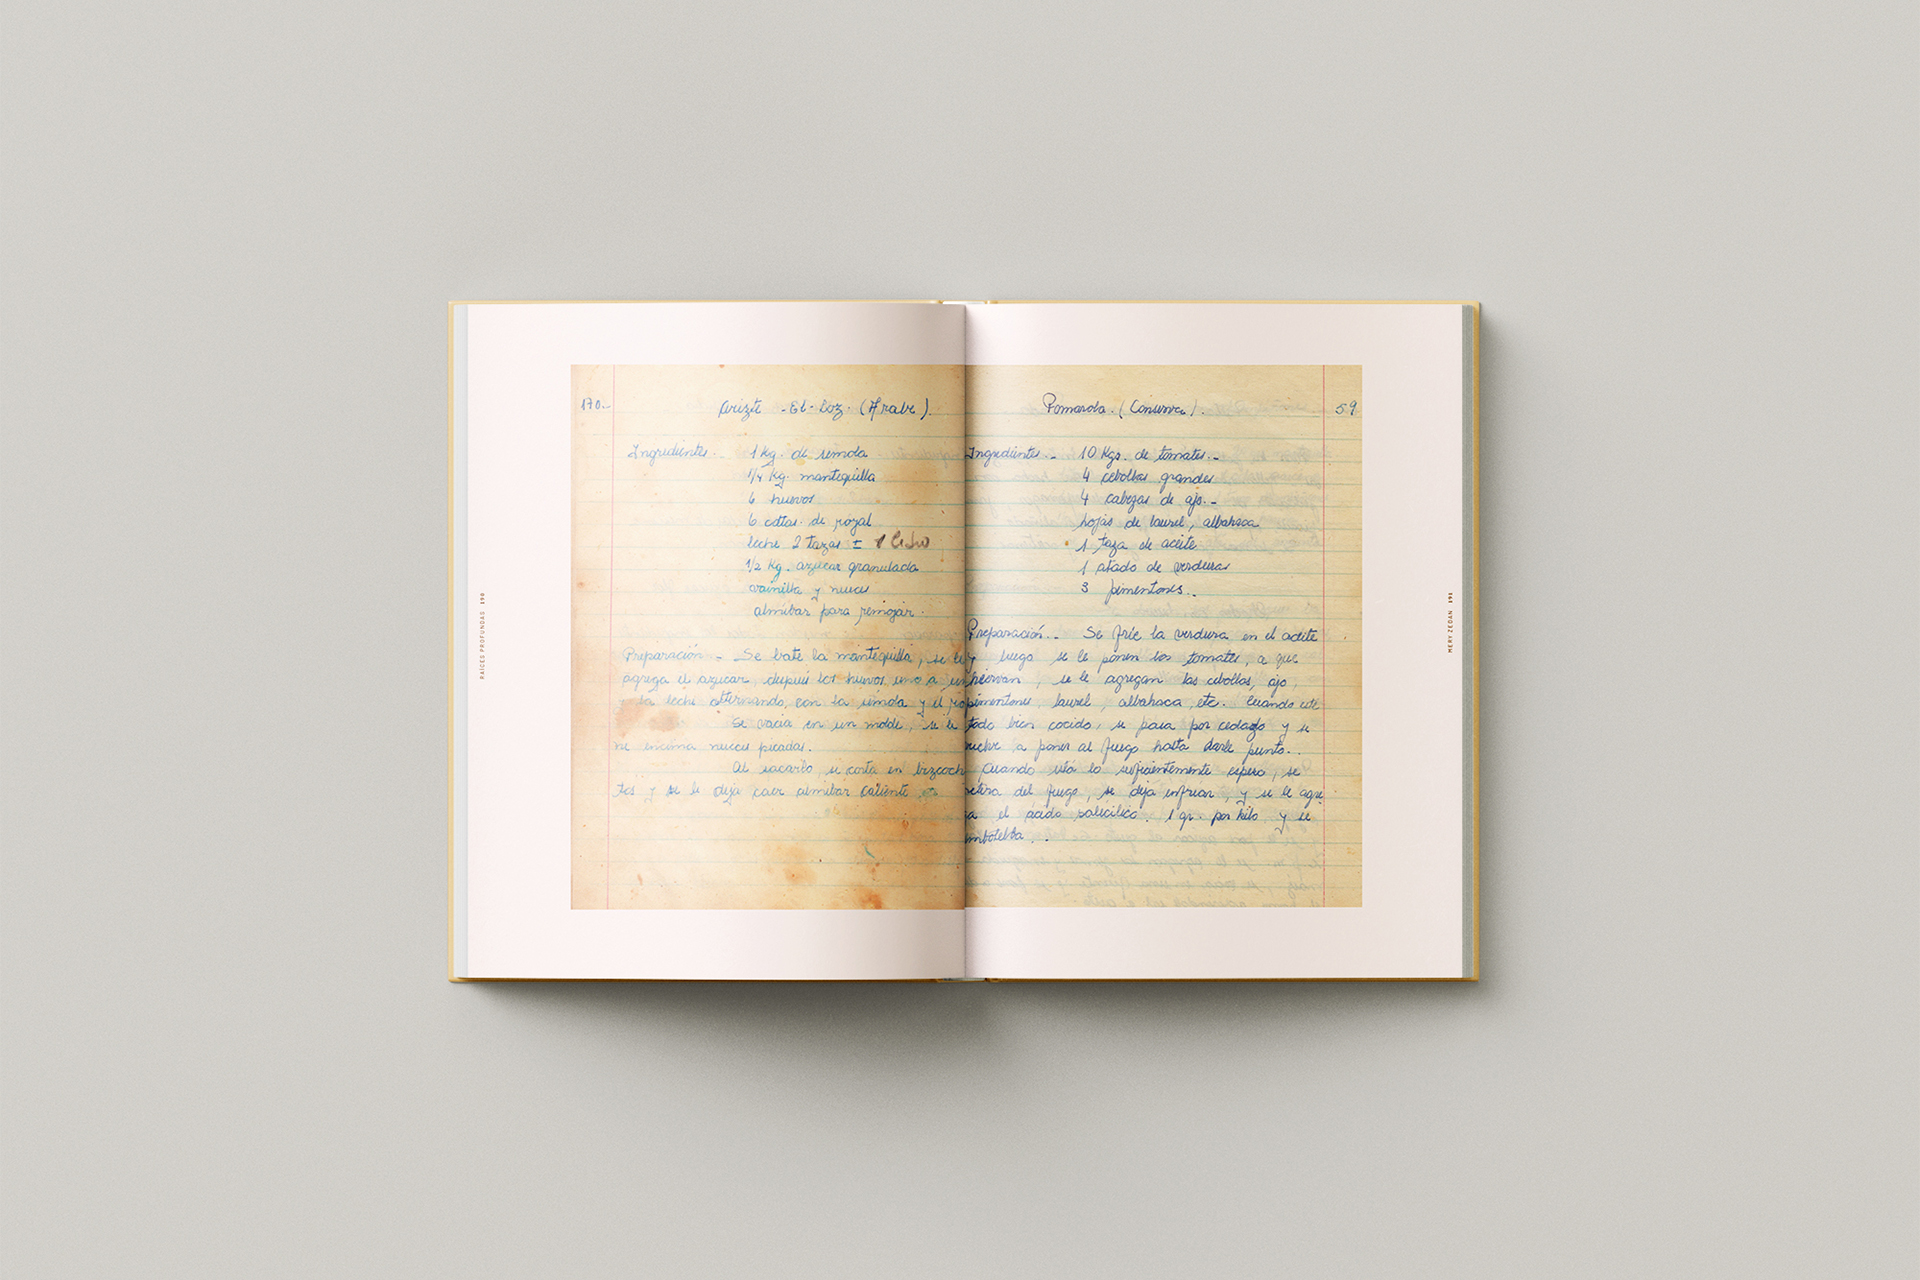 RAÍCES PROFUNDAS 190
170.-
Arizte - El - Loz. (Arabe).
Ingredientes.- 1 kg. de sémola
1/4 kg. mantequilla
6 huevos
6 cdtas. de royal
leche 2 tazas ±
1/2 kg. azúcar granulada
vainilla y nueces
almíbar para remojar.
Preparación - Se bate la mantequilla, se le
agrega el azúcar, después los huevos uno a un
y la leche alternando, con la sémola y el ro
Se vacia en un molde, se le
ne encima nueces picadas.
Al sacarlo, se corta en bizcoch
tos y se le deja caer almíbar caliente
Pomarola. (Conserva).
59
Ingredientes.- 10 Kgs. de tomates.-
4 cebollas grandes
4 cabezas de ajo.-
hojas de laurel, albahaca
1 taza de aceite
1 atado de verduras
3 pimentones..
Preparación.- Se fríe la verdura en el aceite
y luego se le ponen los tomates, a que
hiervan, se le agregan las cebollas, ajo,
pimentones, laurel, albahaca, etc. Cuando esté
todo bien cocido, se pasa por cedazo y se
vuelve a poner al fuego hasta darle punto..
Cuando está lo suficientemente espeso, se
retira del fuego, se deja enfriar, y se le agre
ga el ácido salicílico, 1 gr. por kilo y se
embotella..
MERY ZEDAN 191